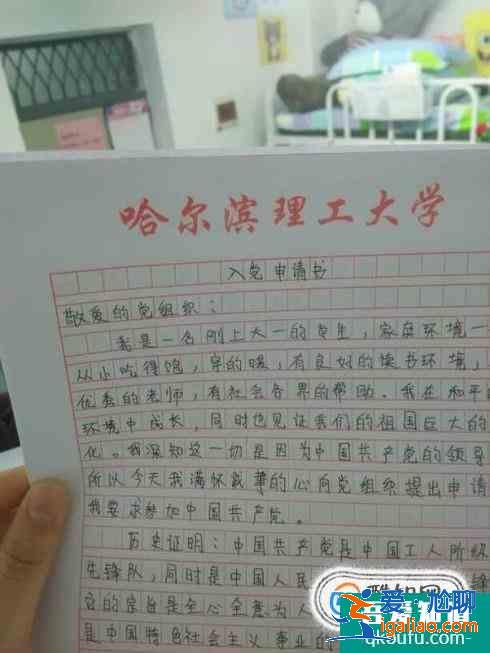 哈尔滨理工大学
入党申请书
敬爱的党组织：
我是一名刚上大一的专生，家庭环境一
从小吃得饱，穿的暖，有良好的读书环境，
优秀的老师，有社会各界的帮助。我在和平
环境中成长，同时也见证我们的祖国巨大的
化。我深知这一切是因为中国共产党的领导
所以今天我满怀诚挚的心向党组织提出申请
我要求参加中国共产党。
历史证明：中国共产党是中国工人阶级
先锋队，同时是中国人民
它的宗旨是全心全意为人
是中国特色社会主义事业的
爱尬聊
jiangaliao.com
qk9ufu.com